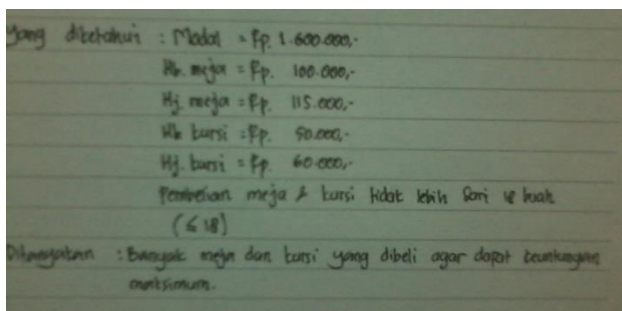 Yang diketahui : Modal = Rp. 1.600.000,-
Hb. meja = Rp. 100.000,-
Hj. meja = Rp. 115.000,-
Hb kursi = Rp. 50.000,-
Hj. kursi = Rp. 60.000,-
Pembelian meja & kursi tidak lebih dari 18 buah
(≤ 18)
Ditanyakan : Banyak meja dan kursi yang dibeli agar dapat keuntungan
maksimum.